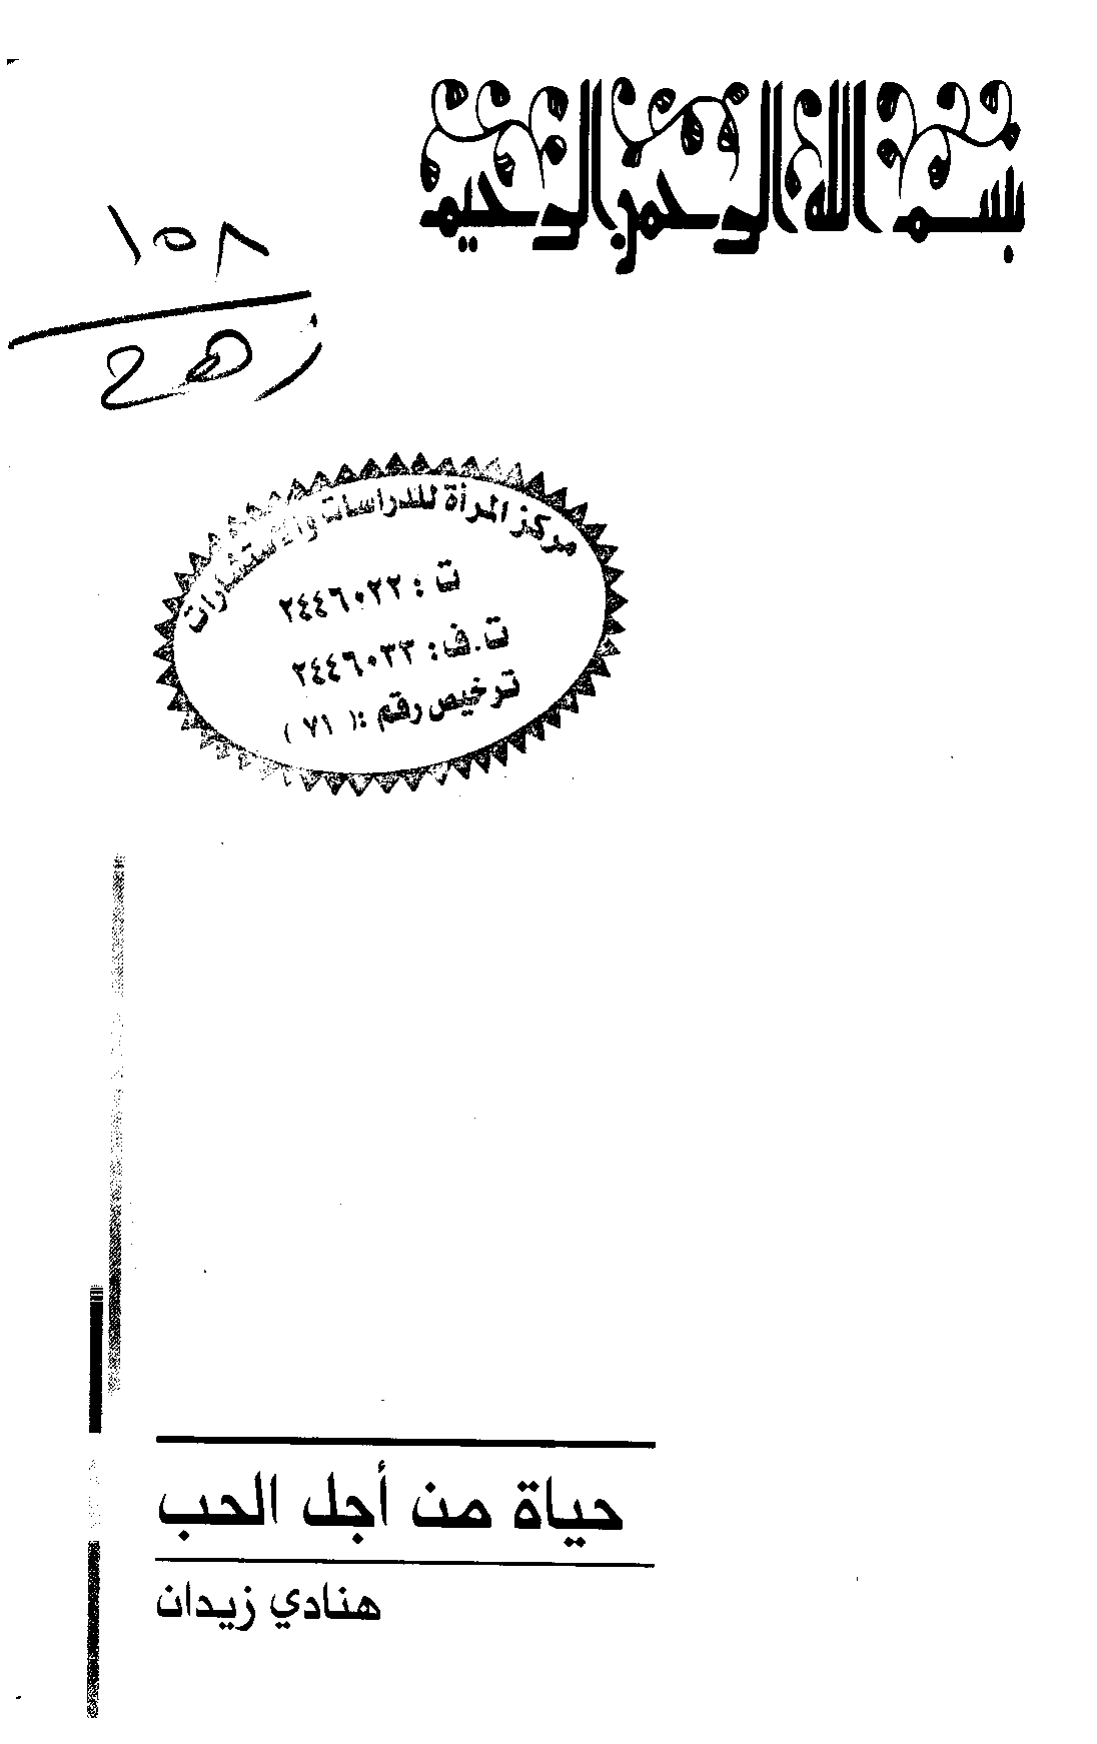 بسم الله الرحمن الرحيم
١٥٨
زهـ
مركز المرأة للدراسات والاستشارات
ت : ٢٤٤٦٠٢٢
ت.ف: ٢٤٤٦٠٣٣
ترخيص رقم :( ٧١ )
حياة من أجل الحب
هنادي زيدان